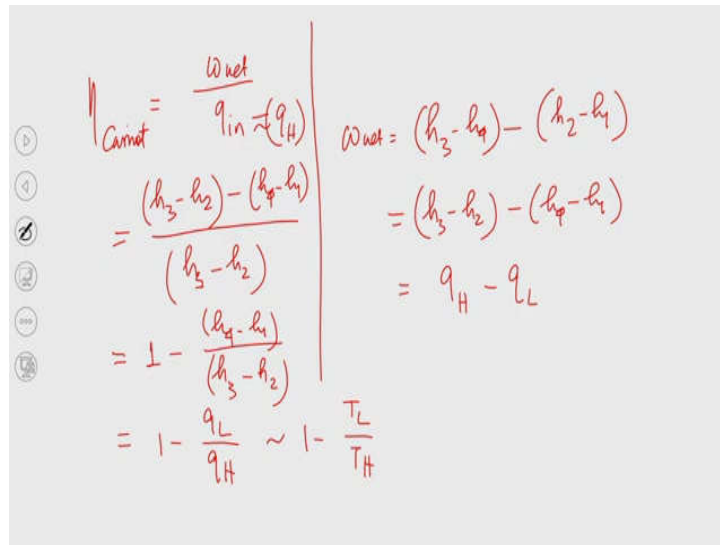 η_Carnot = w_net / q_in = (q_H)
= ((h_3 - h_2) - (h_4 - h_1)) / (h_3 - h_2)
= 1 - (h_4 - h_1) / (h_3 - h_2)
= 1 - q_L / q_H ~ 1 - T_L / T_H
w_net = (h_3 - h_4) - (h_2 - h_1)
= (h_3 - h_2) - (h_4 - h_1)
= q_H - q_L